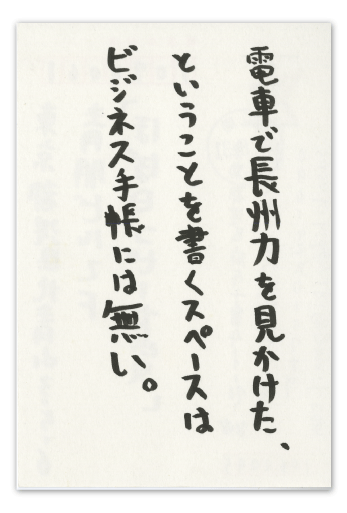 電車で長州力を見かけた、
ということを書くスペースは
ビジネス手帳には無い。